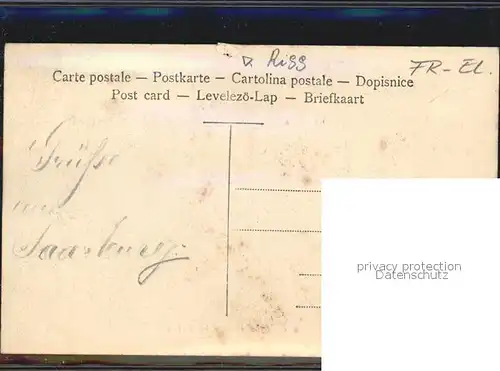 Rigg
FR-El.
Carte postale — Postkarte — Cartolina postale — Dopisnice
Post card — Levelezö-Lap — Briefkaart
Grüße
aus
Saarburg
privacy protection
Datenschutz